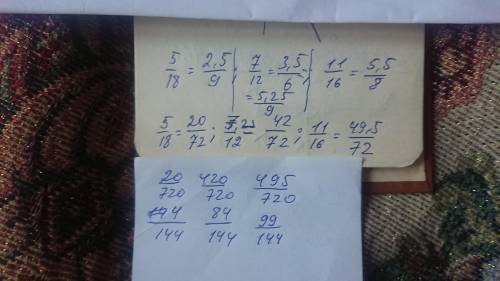 5/18 = 2,5/9; 7/12 = 3,5/6; 11/16 = 5,5/8
= 5,25/9
5/18 = 20/72; 7/12 = 42/72; 11/16 = 49,5/72
20/720 420/720 495/720
44/144 84/144 99/144